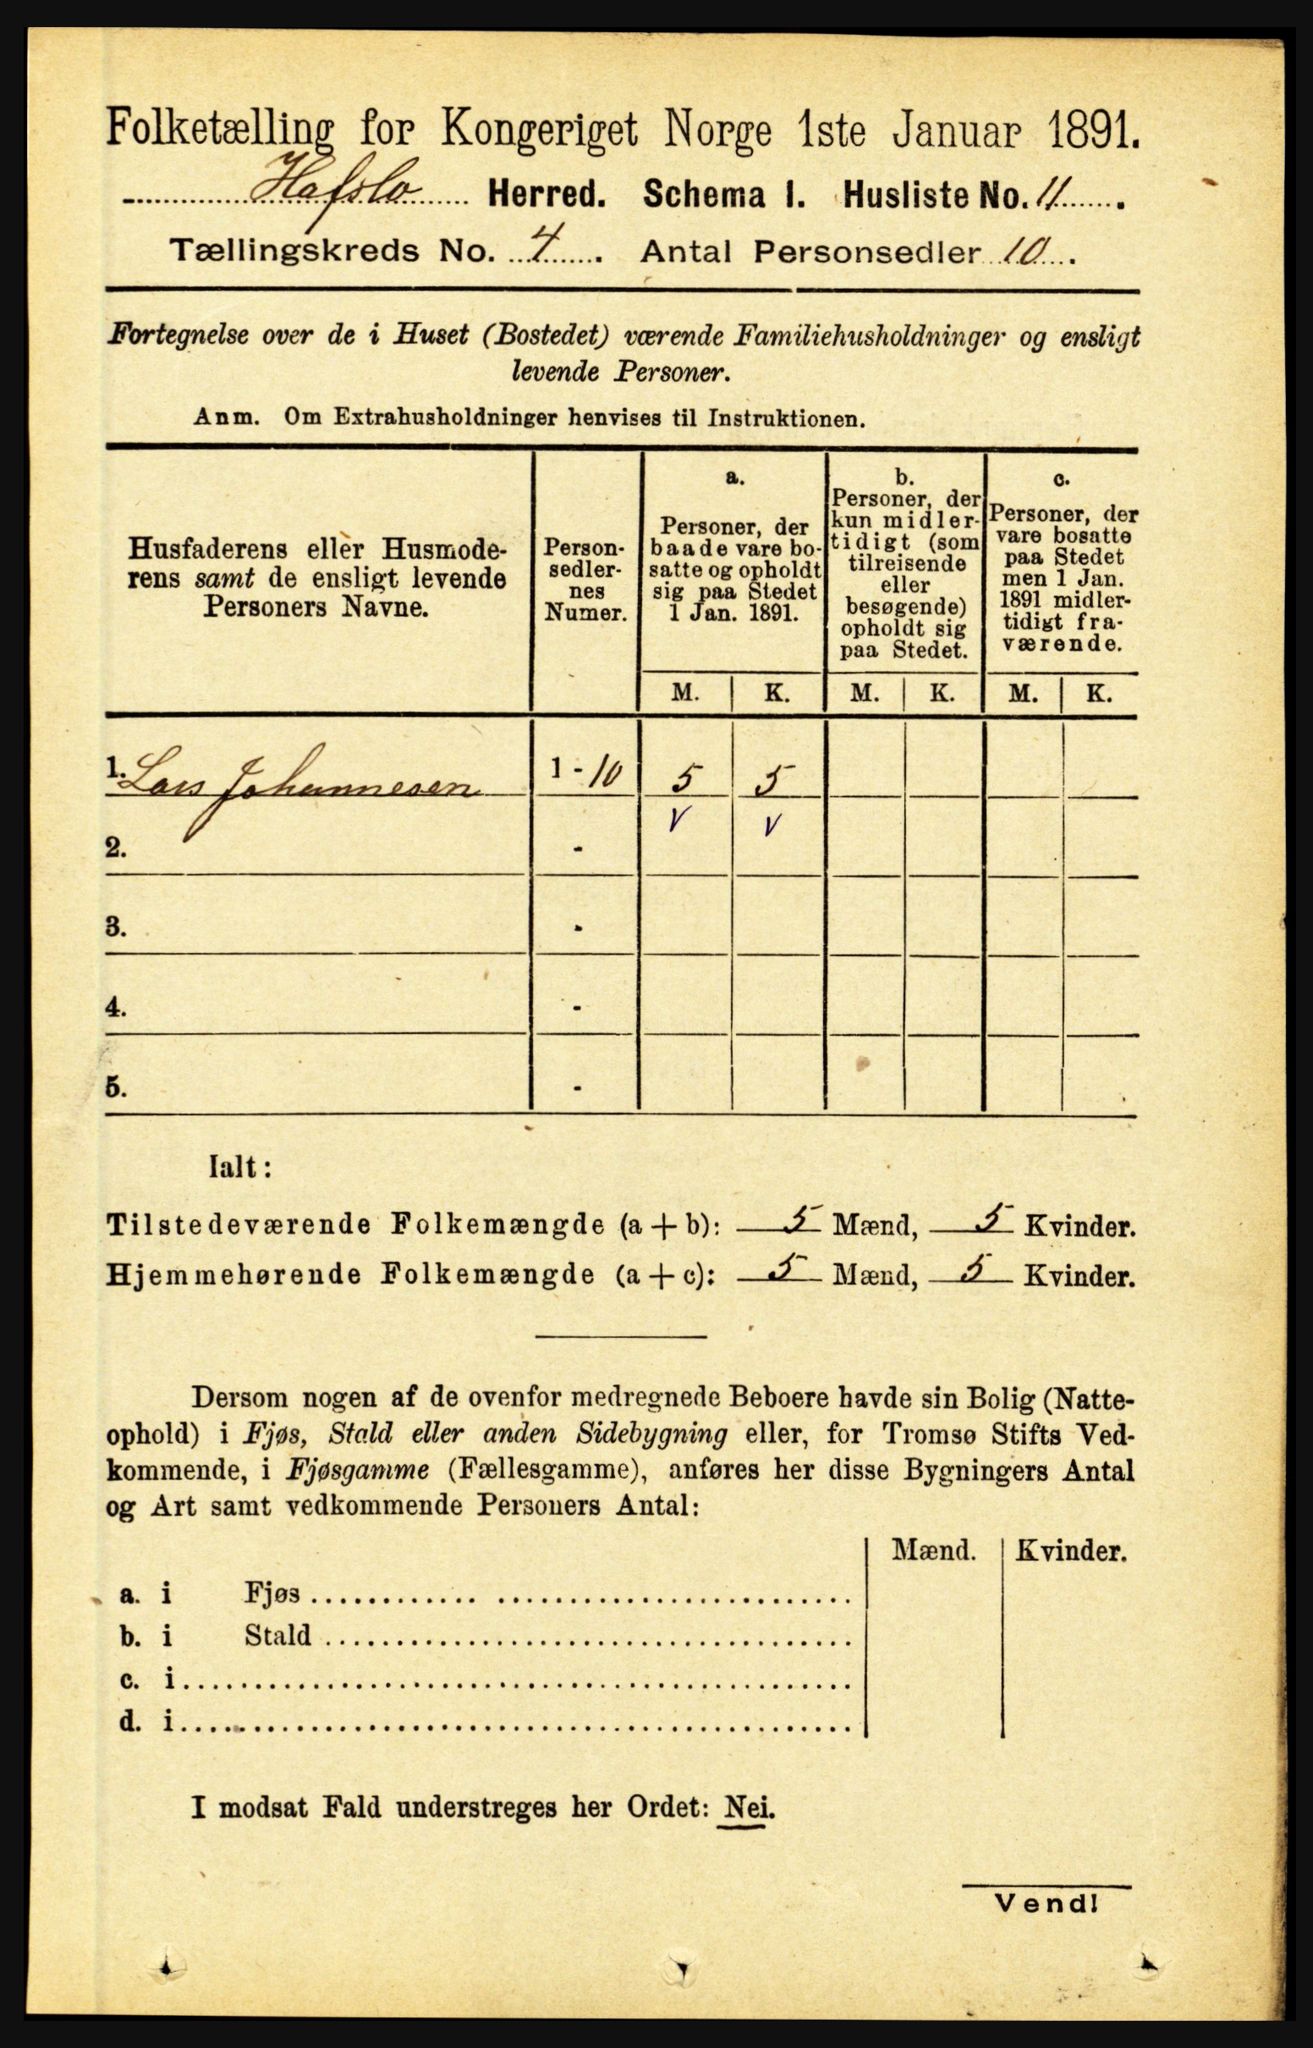 Folketælling for Kongeriget Norge 1ste Januar 1891.
Hafslo Herred. Schema I. Husliste No. 11.
Tællingskreds No. 4. Antal Personsedler 10.
Fortegnelse over de i Huset (Bostedet) værende Familiehusholdninger og ensligt
levende Personer.
Anm. Om Extrahusholdninger henvises til Instruktionen.
Husfaderens eller Husmode-
rens samt de ensligt levende
Personers Navne.
Person-
sedler-
nes
Numer.
a.
Personer, der
baade vare bo-
satte og opholdt
sig paa Stedet
1 Jan. 1891.
b.
Personer, der
kun midler-
tidigt (som
tilreisende
eller
besøgende)
opholdt sig
paa Stedet.
c.
Personer, der
vare bosatte
paa Stedet
men 1 Jan.
1891 midler-
tidigt fra-
værende.
M. K. M. K. M. K.
1. Lars Johannesen 1 - 10 5 5
V V
2. -
3. -
4. -
5. -
Ialt:
Tilstedeværende Folkemængde (a + b): 5 Mænd, 5 Kvinder.
Hjemmehørende Folkemængde (a + c): 5 Mænd, 5 Kvinder.
Dersom nogen af de ovenfor medregnede Beboere havde sin Bolig (Natte-
ophold) i Fjøs, Stald eller anden Sidebygning eller, for Tromsø Stifts Ved-
kommende, i Fjøsgamme (Fællesgamme), anføres her disse Bygningers Antal
og Art samt vedkommende Personers Antal:
Mænd. Kvinder.
a. i Fjøs
b. i Stald
c. i
d. i
I modsat Fald understreges her Ordet: Nei.
Vend!